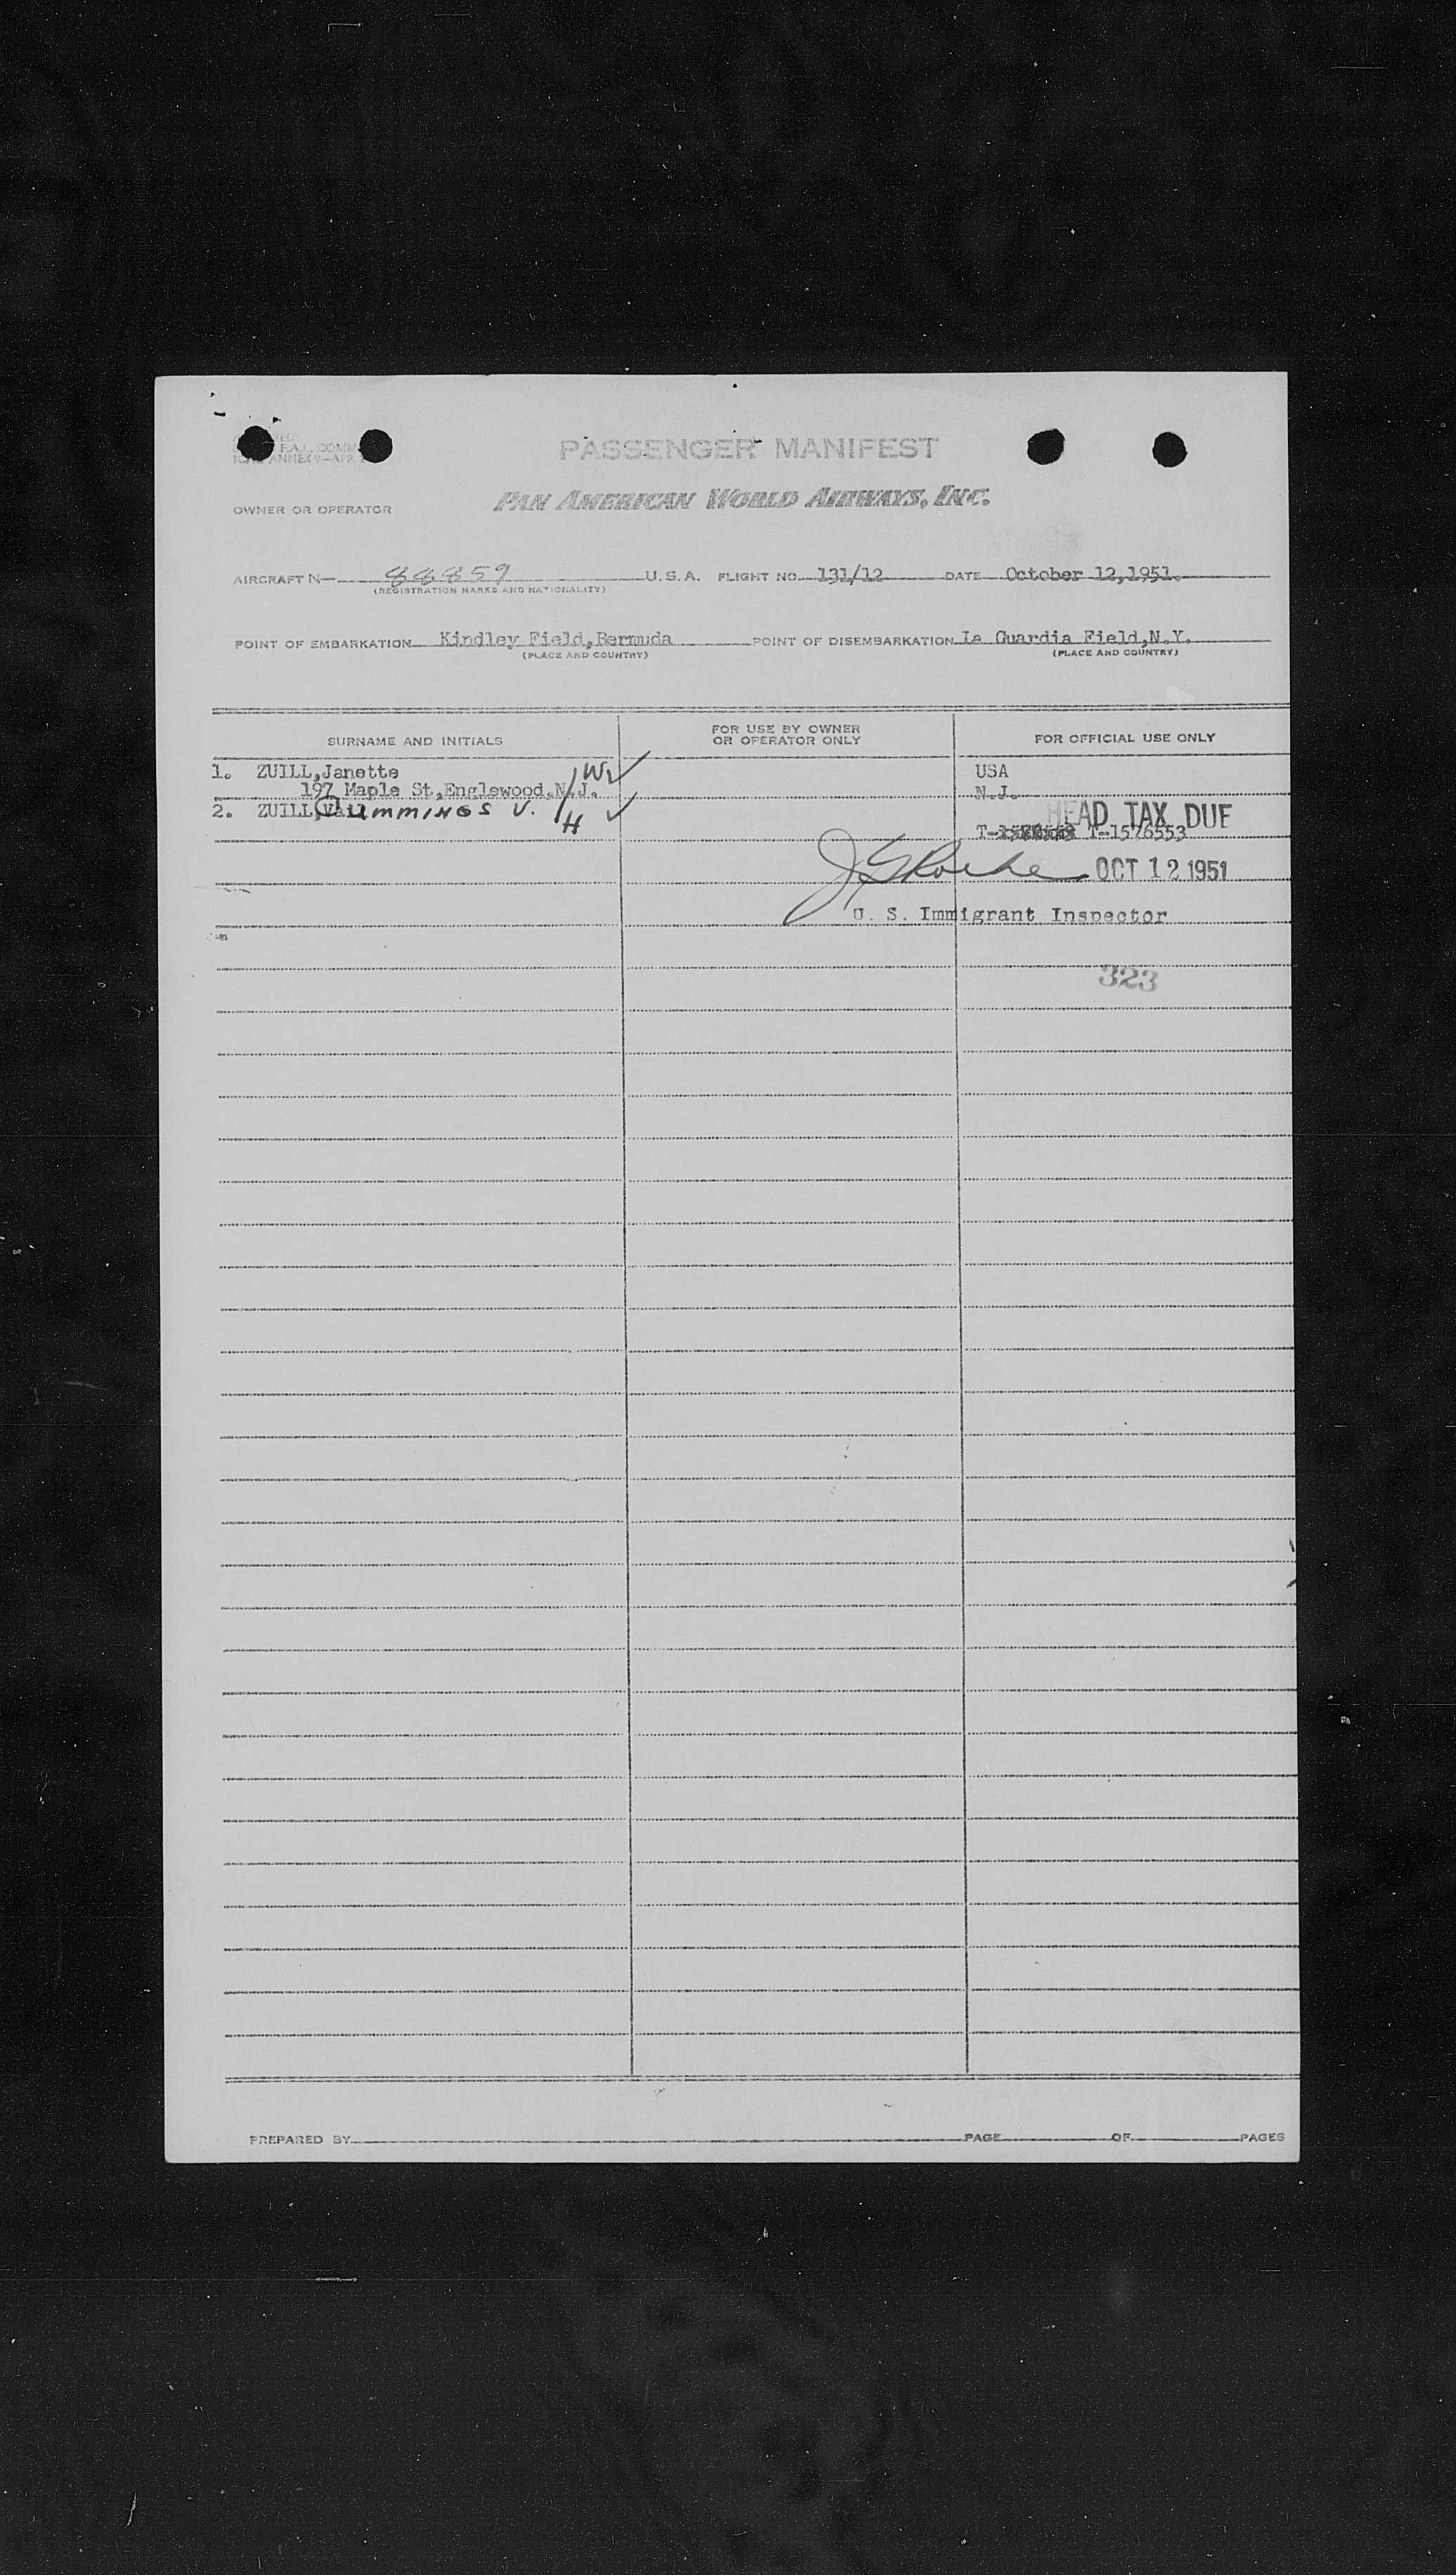 PASSENGER MANIFEST
OWNER OR OPERATOR PAN AMERICAN WORLD AIRWAYS, INC.
AIRCRAFT N- 88859 U.S.A. FLIGHT NO. 131/12 DATE October 12,1951.
(REGISTRATION MARKS AND NATIONALITY)
POINT OF EMBARKATION Kindley Field,Bermuda POINT OF DISEMBARKATION La Guardia Field,N.Y.
(PLACE AND COUNTRY) (PLACE AND COUNTRY)
SURNAME AND INITIALS FOR USE BY OWNER OR OPERATOR ONLY FOR OFFICIAL USE ONLY
1. ZUILL,Janette W USA
197 Maple St,Englewood,N.J. N.J.
2. ZUILL, CUMMINGS V. H HEAD TAX DUE
T-1576553
OCT 12 1951
U. S. Immigrant Inspector
323
PREPARED BY PAGE OF PAGES